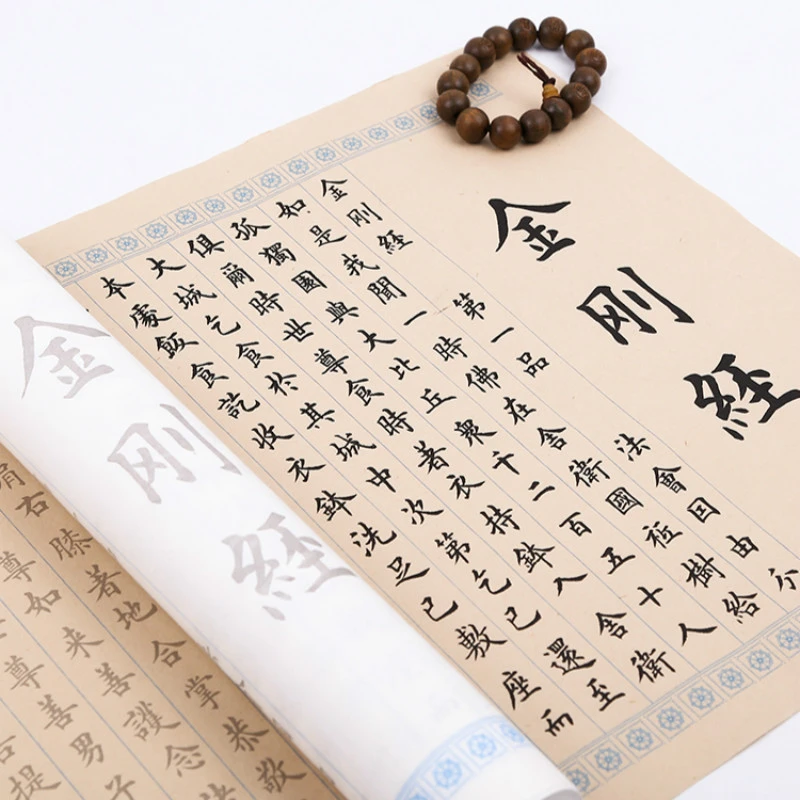 金刚經
金剛經 第一品 法會囙由分
如是我聞一時佛在舍衛國祇樹給
孤獨園與大比丘衆千二百五十人
俱爾時世尊食時著衣持鉢入舍衛
大城乞食於其城中次第乞已還至
本處飯食訖收衣鉢洗足已敷座而
金刚經
肩右膝著地合掌恭敬
尊如來善護念
尊善男子
提